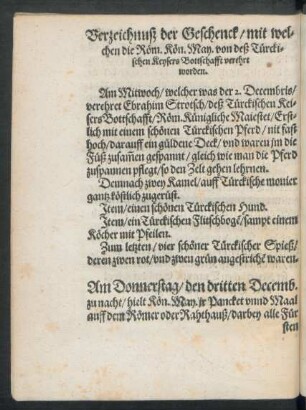 Verzeichnuß der Geschenck / mit wel-
chen die Röm. Kön. May. von deß Türcki-
schen Keysers Bottschafft verehrt
worden.
Am Mitwoch / welcher was der 2. Decembris /
verehret Ebrahim Strotsch / deß Türckischen Kei-
sers Bottschafft / Röm. Künigliche Maiestet / Erst-
lich mit einem schönen Türckischen Pferd / mit fast
hoch / darauff ein güldene Deck / vnd waren jm die
Füß zusam̃en gespannt / gleich wie man die Pferd
zuspannen pflegt / so den Zelt gehen lehrnen.
Demnach zwey Kamel / auff Türckische monier
gantz köstlich zugerüst.
Item / einen schönen Türckischen Hund.
Item / ein Türckischen Flitschbogē / sampt einem
Köcher mit Pfeilen.
Zum letzten / vier schöner Türckischer Spieß /
deren zwen rot / vnd zwen grün angestrichē waren.
Am Donnerstag / den dritten Decemb.
zu nacht / hielt Kön. May. jr Pancket vnnd Maal
auff dem Römer oder Rahthauß / darbey alle Für
sten